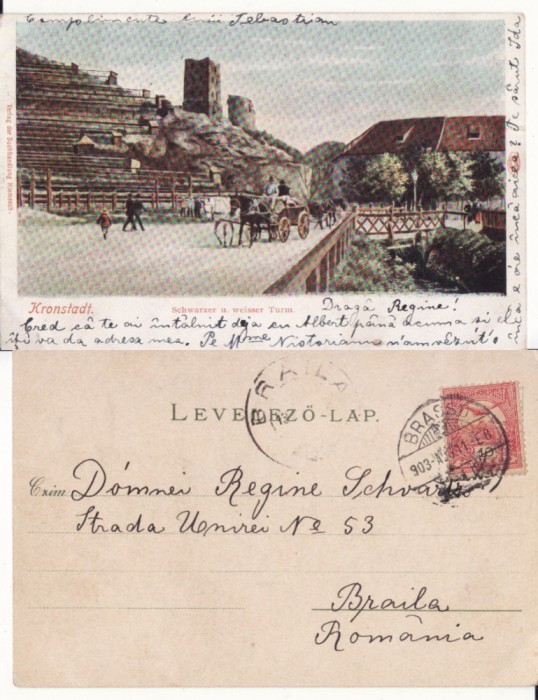 Complimente lui Sebastian
Verlag der Buchhandlung
Kronstadt.
Schwarzer u. weisser Turm.
Dragă Regine!
Cred că te ai întâlnit deja cu Albert până acuma si el
îți va da adresa mea. Pe Mme Nistorianu n'am văzut'o
e óre încă aicea? Te sărut Ida
LEVELEZŐ-LAP.
BRAILA
BRASSÓ
903
Czim:
Dómnei Regine Schvartz
Strada Unirei No 53
Braila
România